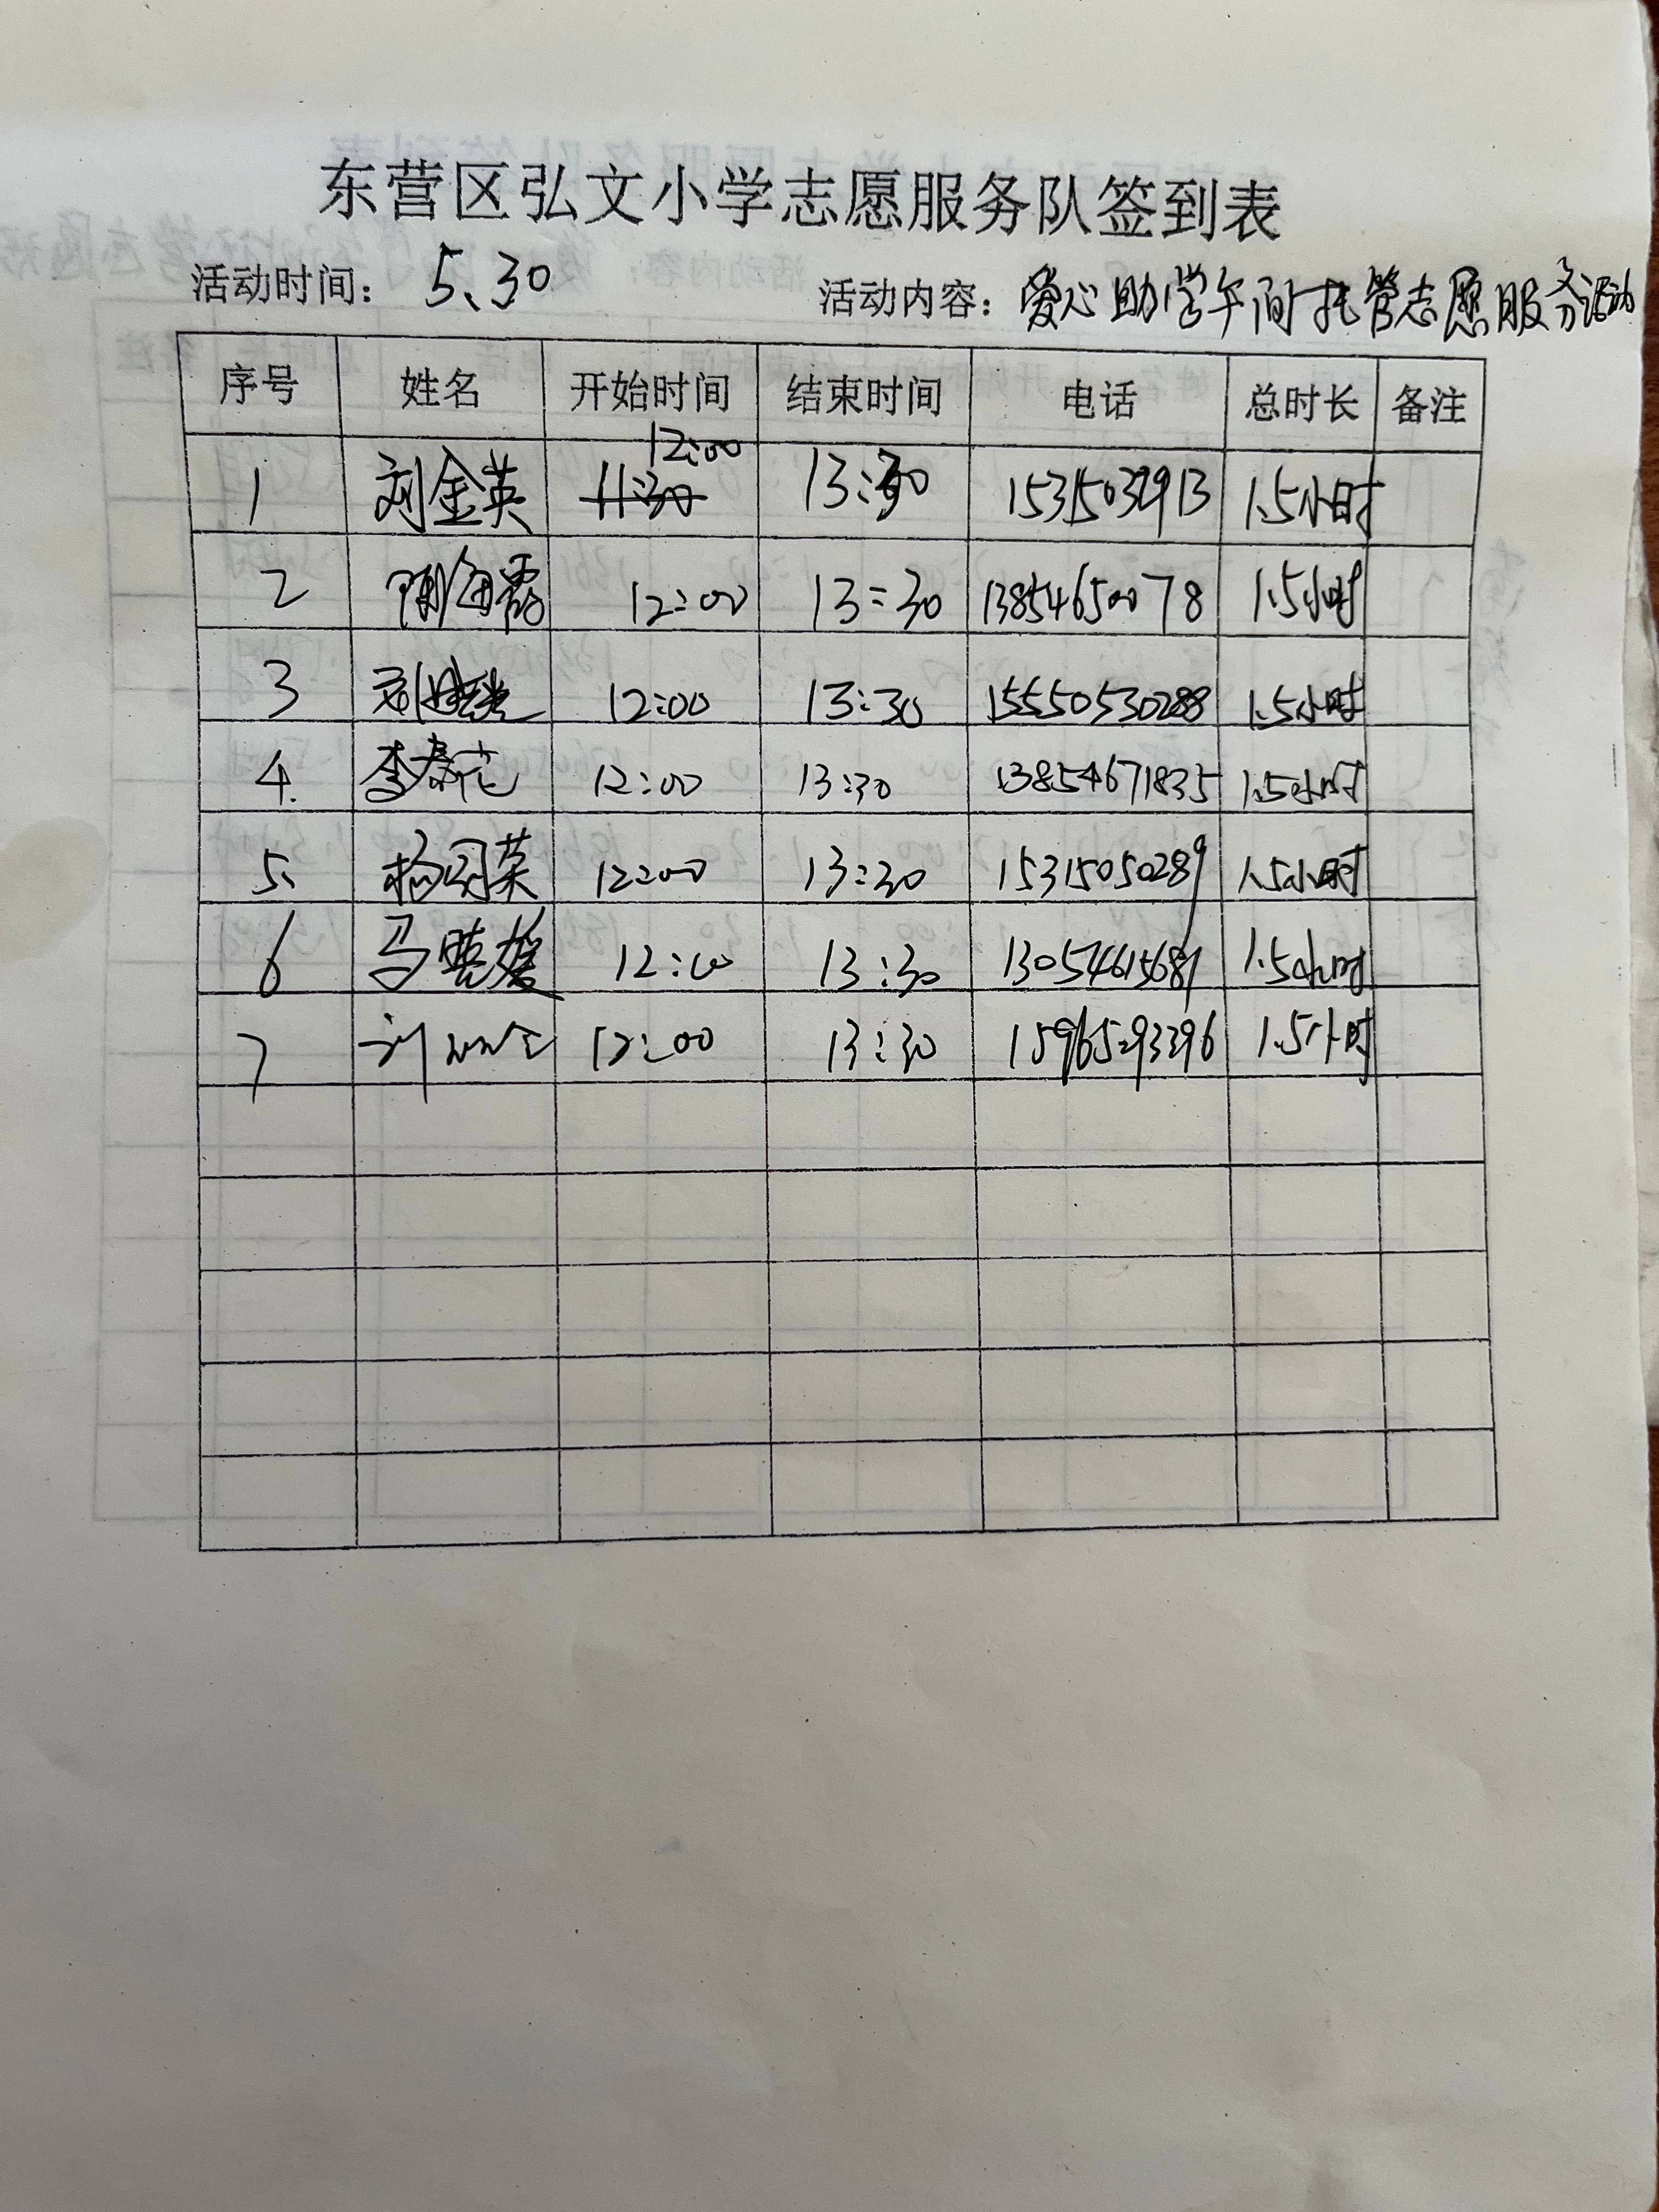 东营区弘文小学志愿服务队签到表
活动时间： 5、30 活动内容：爱心助学午间托管志愿服务活动
序号 姓名 开始时间 结束时间 电话 总时长 备注
12:00
1 刘金英 11:30 13:30 15315032913 1.5小时
2 12:00 13:30 13854650078 1.5小时
3 12:00 13:30 15550530288 1.5小时
4. 李春花 12:00 13:30 13854671835 1.5小时
5、 杨丽英 12:00 13:30 15315050289 1.5小时
6 马晓媛 12:00 13:30 13054615687 1.5小时
7 12:00 13:30 15965293296 1.5小时